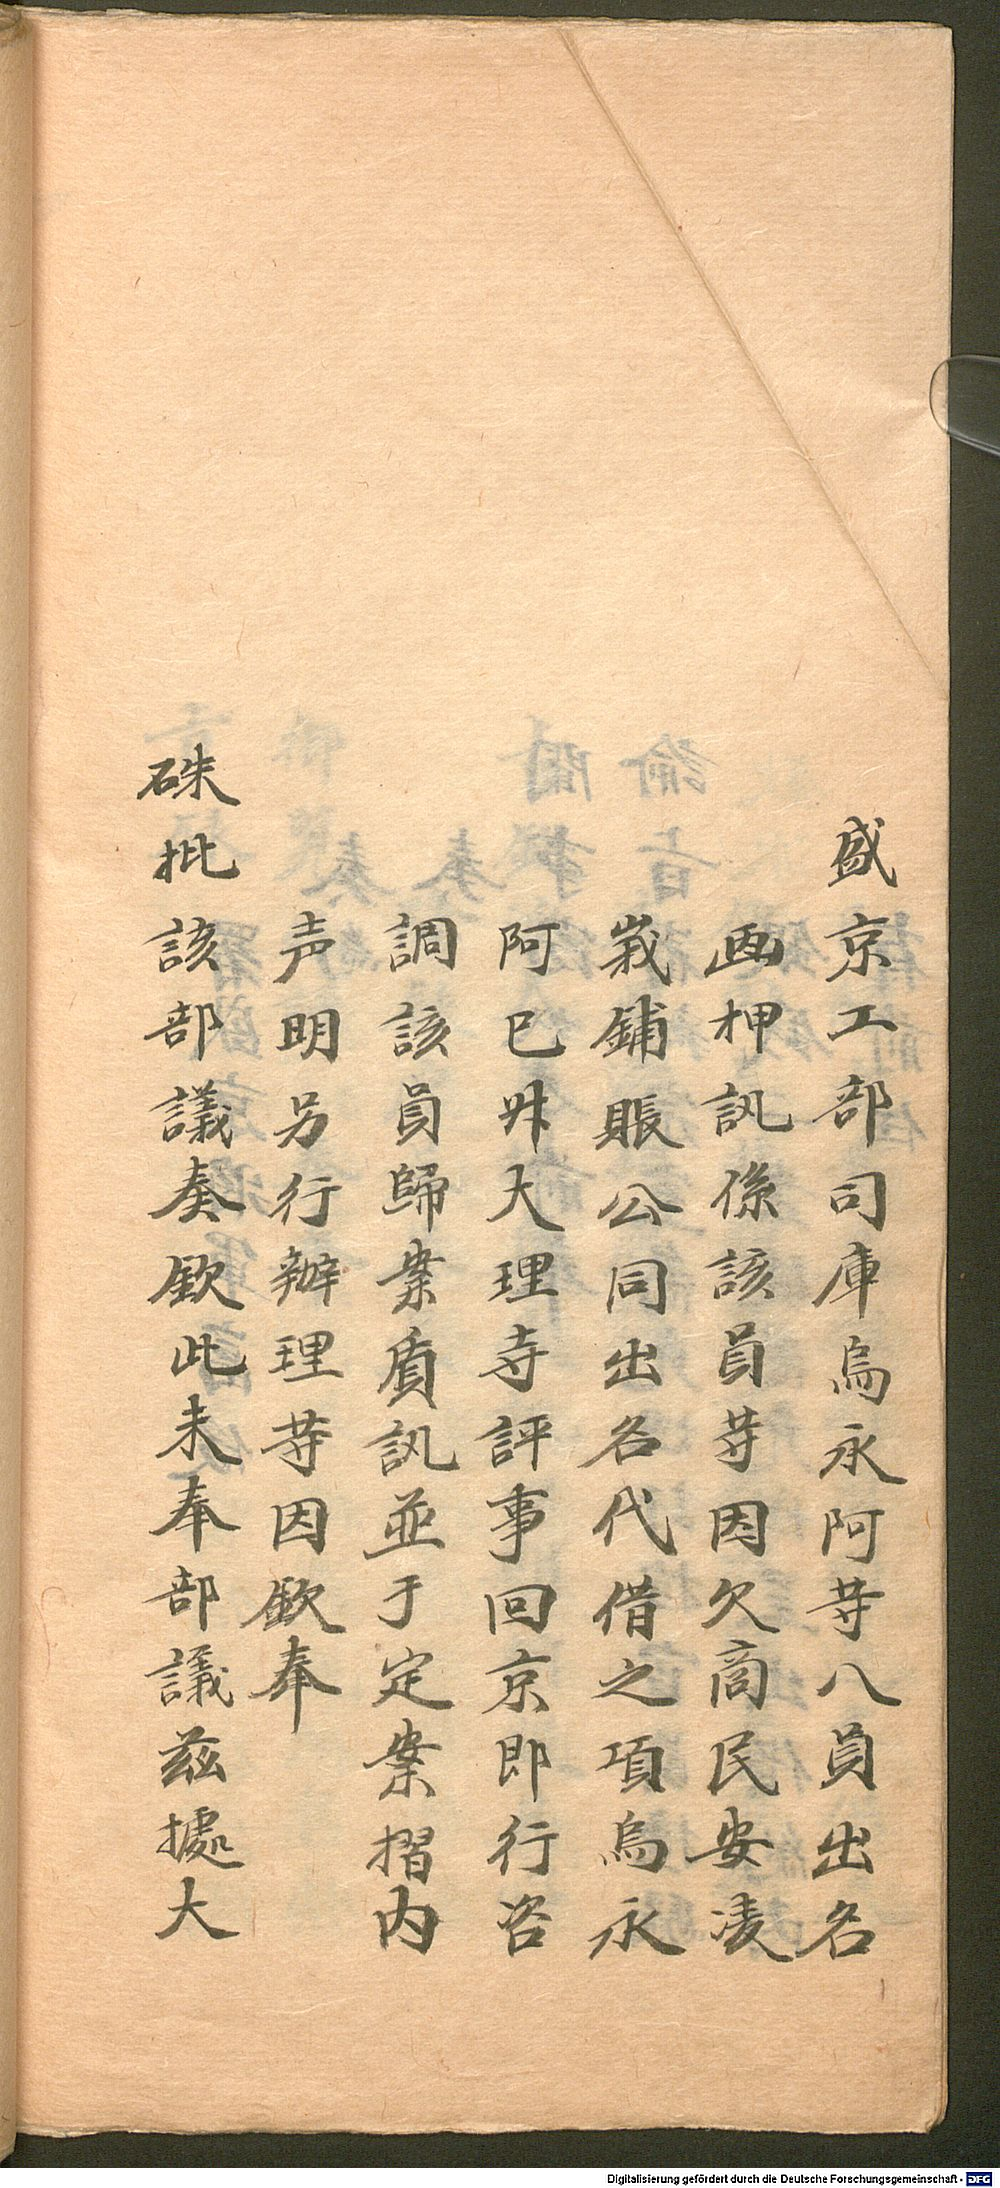 盛京工部司庫烏永阿荨八員出名
画押訊係該員荨因欠商民安凌
峩鋪賬公同出名代借之項烏永
阿已陞大理寺評事回京即行咨
調該員歸案質訊並于定案摺内
声明另行辦理荨因欽奉
硃批該部議奏欽此未奉部議茲據大
Digitalisierung gefördert durch die Deutsche Forschungsgemeinschaft - DFG